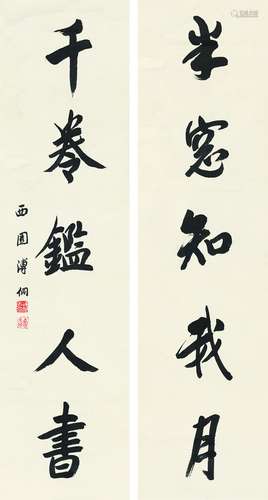 半窗知我月
千卷鑑人書
西園溥侗